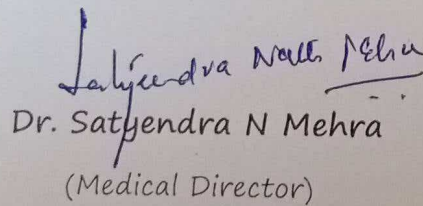 Satyendra Nath Mehra
Dr. Satyendra N Mehra
(Medical Director)